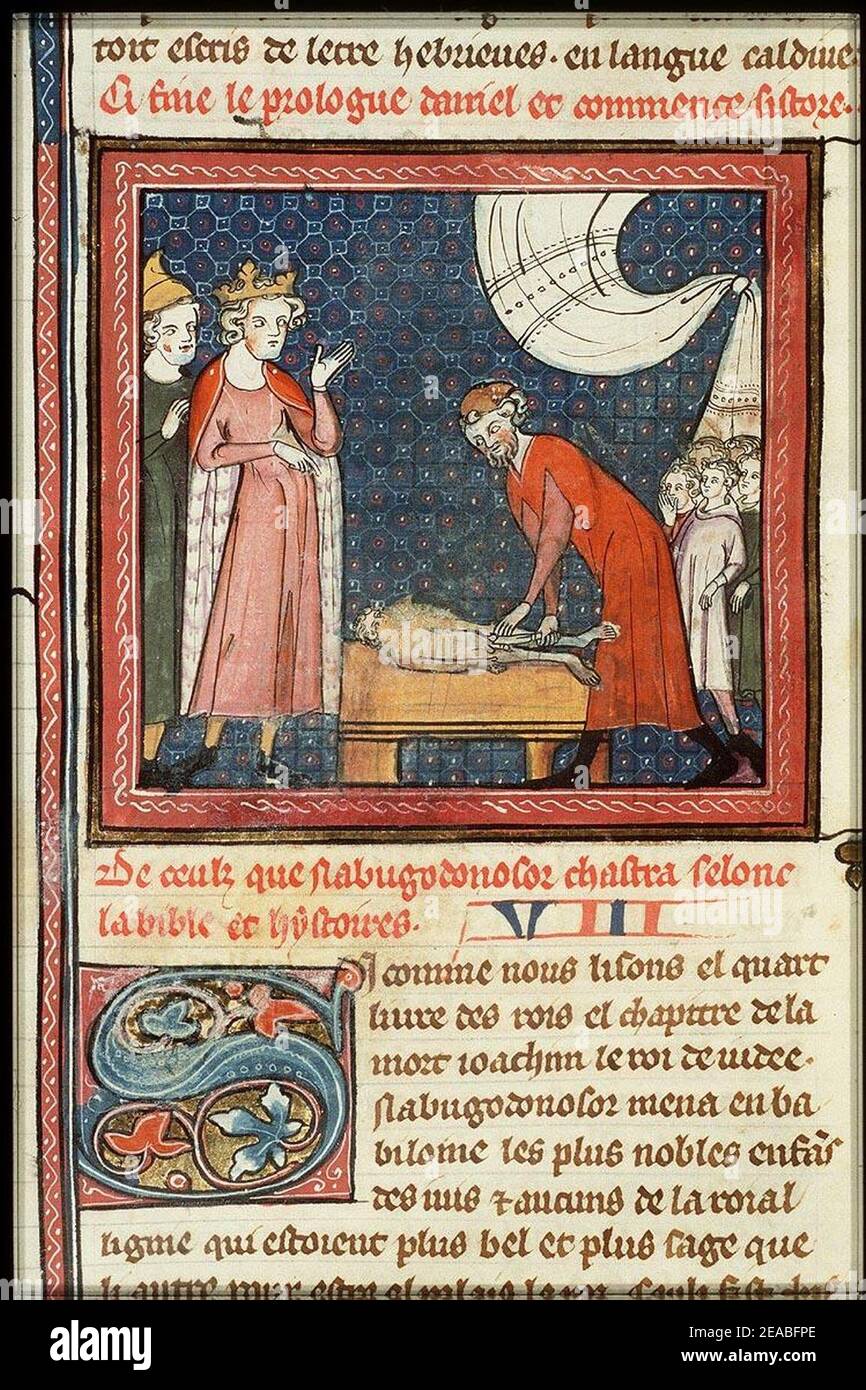 toit escris de letre hebrieues. en langue caldiue.
Ci fine le prologue daniel et commence listore.
De ceulz que Nabugodonosor chastra selonc
la bible et hystoires. VII
Si comme nous lisons el quart
liure des rois el chapitre de la
mort ioachim le roi de iudee.
Nabugodonosor mena en ba
biloine les plus nobles enfās
des iuis & aucuns de la roial
lignie qui estoient plus bel et plus sage que
li autre pour estre el palais le roi.
a
alamy
Image ID: 2EABFPE
www.alamy.com